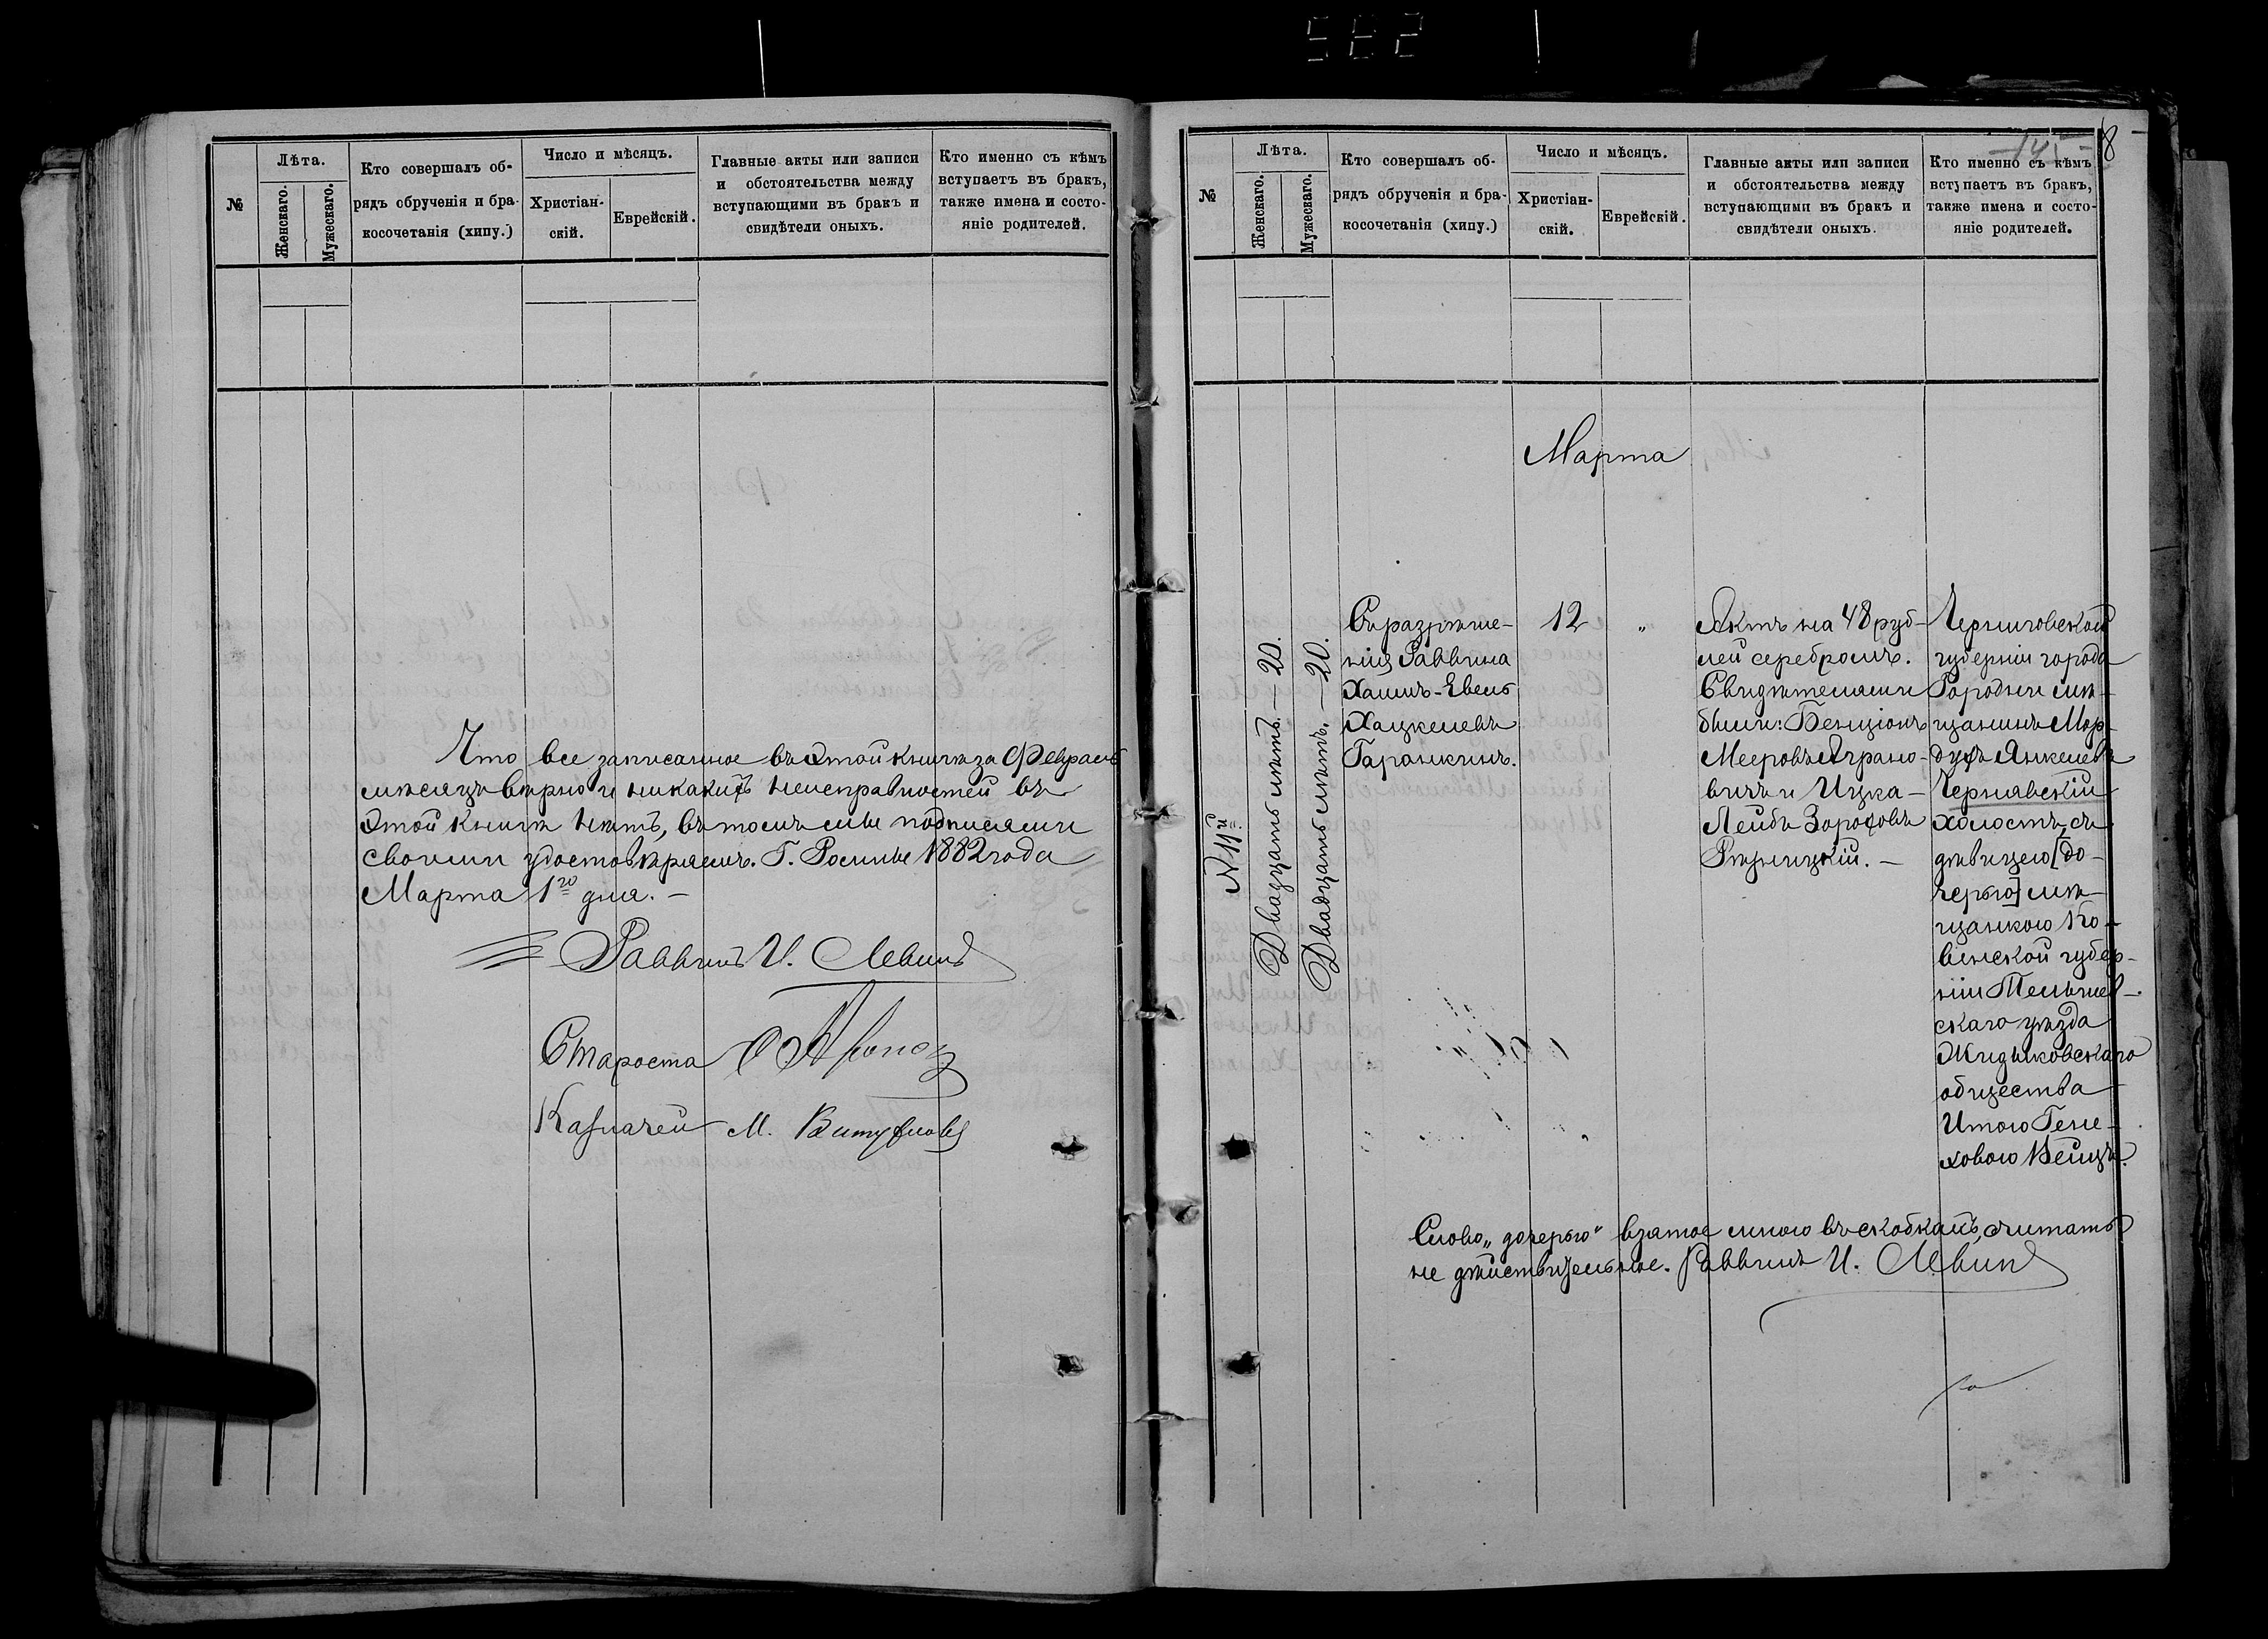 582
№
Лѣта.
Женскаго.
Мужескаго.
Кто совершалъ об-
рядъ обрученія и бра-
косочетанія (хипу.)
Число и мѣсяцъ.
Христіан-
скій.
Еврейскій.
Главные акты или записи
и обстоятельства между
вступающими въ бракъ и
свидѣтели оныхъ.
Кто именно съ кѣмъ
вступаетъ въ бракъ,
также имена и состо-
яніе родителей.
Что все записанное въ этой книгѣ за Февраль
мѣсяцъ вѣрно и никакихъ неисправностей въ
этой книгѣ нѣтъ, въ томъ мы подписями
своими удостовѣряемъ. Г. Ромны 1882 года
Марта 1го дня. —
Раввинъ И. Левинъ
Староста
Казначей М.
8
№
Лѣта.
Женскаго.
Мужескаго.
Кто совершалъ об-
рядъ обрученія и бра-
косочетанія (хипу.)
Число и мѣсяцъ.
Христіан-
скій.
Еврейскій.
Главные акты или записи
и обстоятельства между
вступающими въ бракъ и
свидѣтели оныхъ.
Кто именно съ кѣмъ
вступаетъ въ бракъ,
также имена и состо-
яніе родителей.
Марта
№ 11й
Двадцать лѣтъ. — 20.
Двадцать лѣтъ. — 20.
Съ разрѣше-
нія Раввина
Хаимъ-Евель
Хацкелевъ
Гаранкинъ.
12
"
Актъ на 48 руб-
лей серебромъ.
Свидѣтелями
были: Бенціонъ
Мееровъ Аграно-
вичъ и Ицка-
Лейбъ Зороховъ
Рѣзницкій. —
Черниговской
губерніи города
Городни мѣ-
щанинъ Мор-
духъ Янкелевъ
Чернявскій
холостъ, съ
дѣвицею [до-
черью] мѣ-
щанкою Ко-
винской губер-
ніи Тельшев-
скаго уѣзда
Жидиковскаго
общества
Итою Гене-
ховою Вейцъ.
Слово „дочерью" взятое мною въ скобкахъ, считать
не дѣйствительное. Раввинъ И. Левинъ